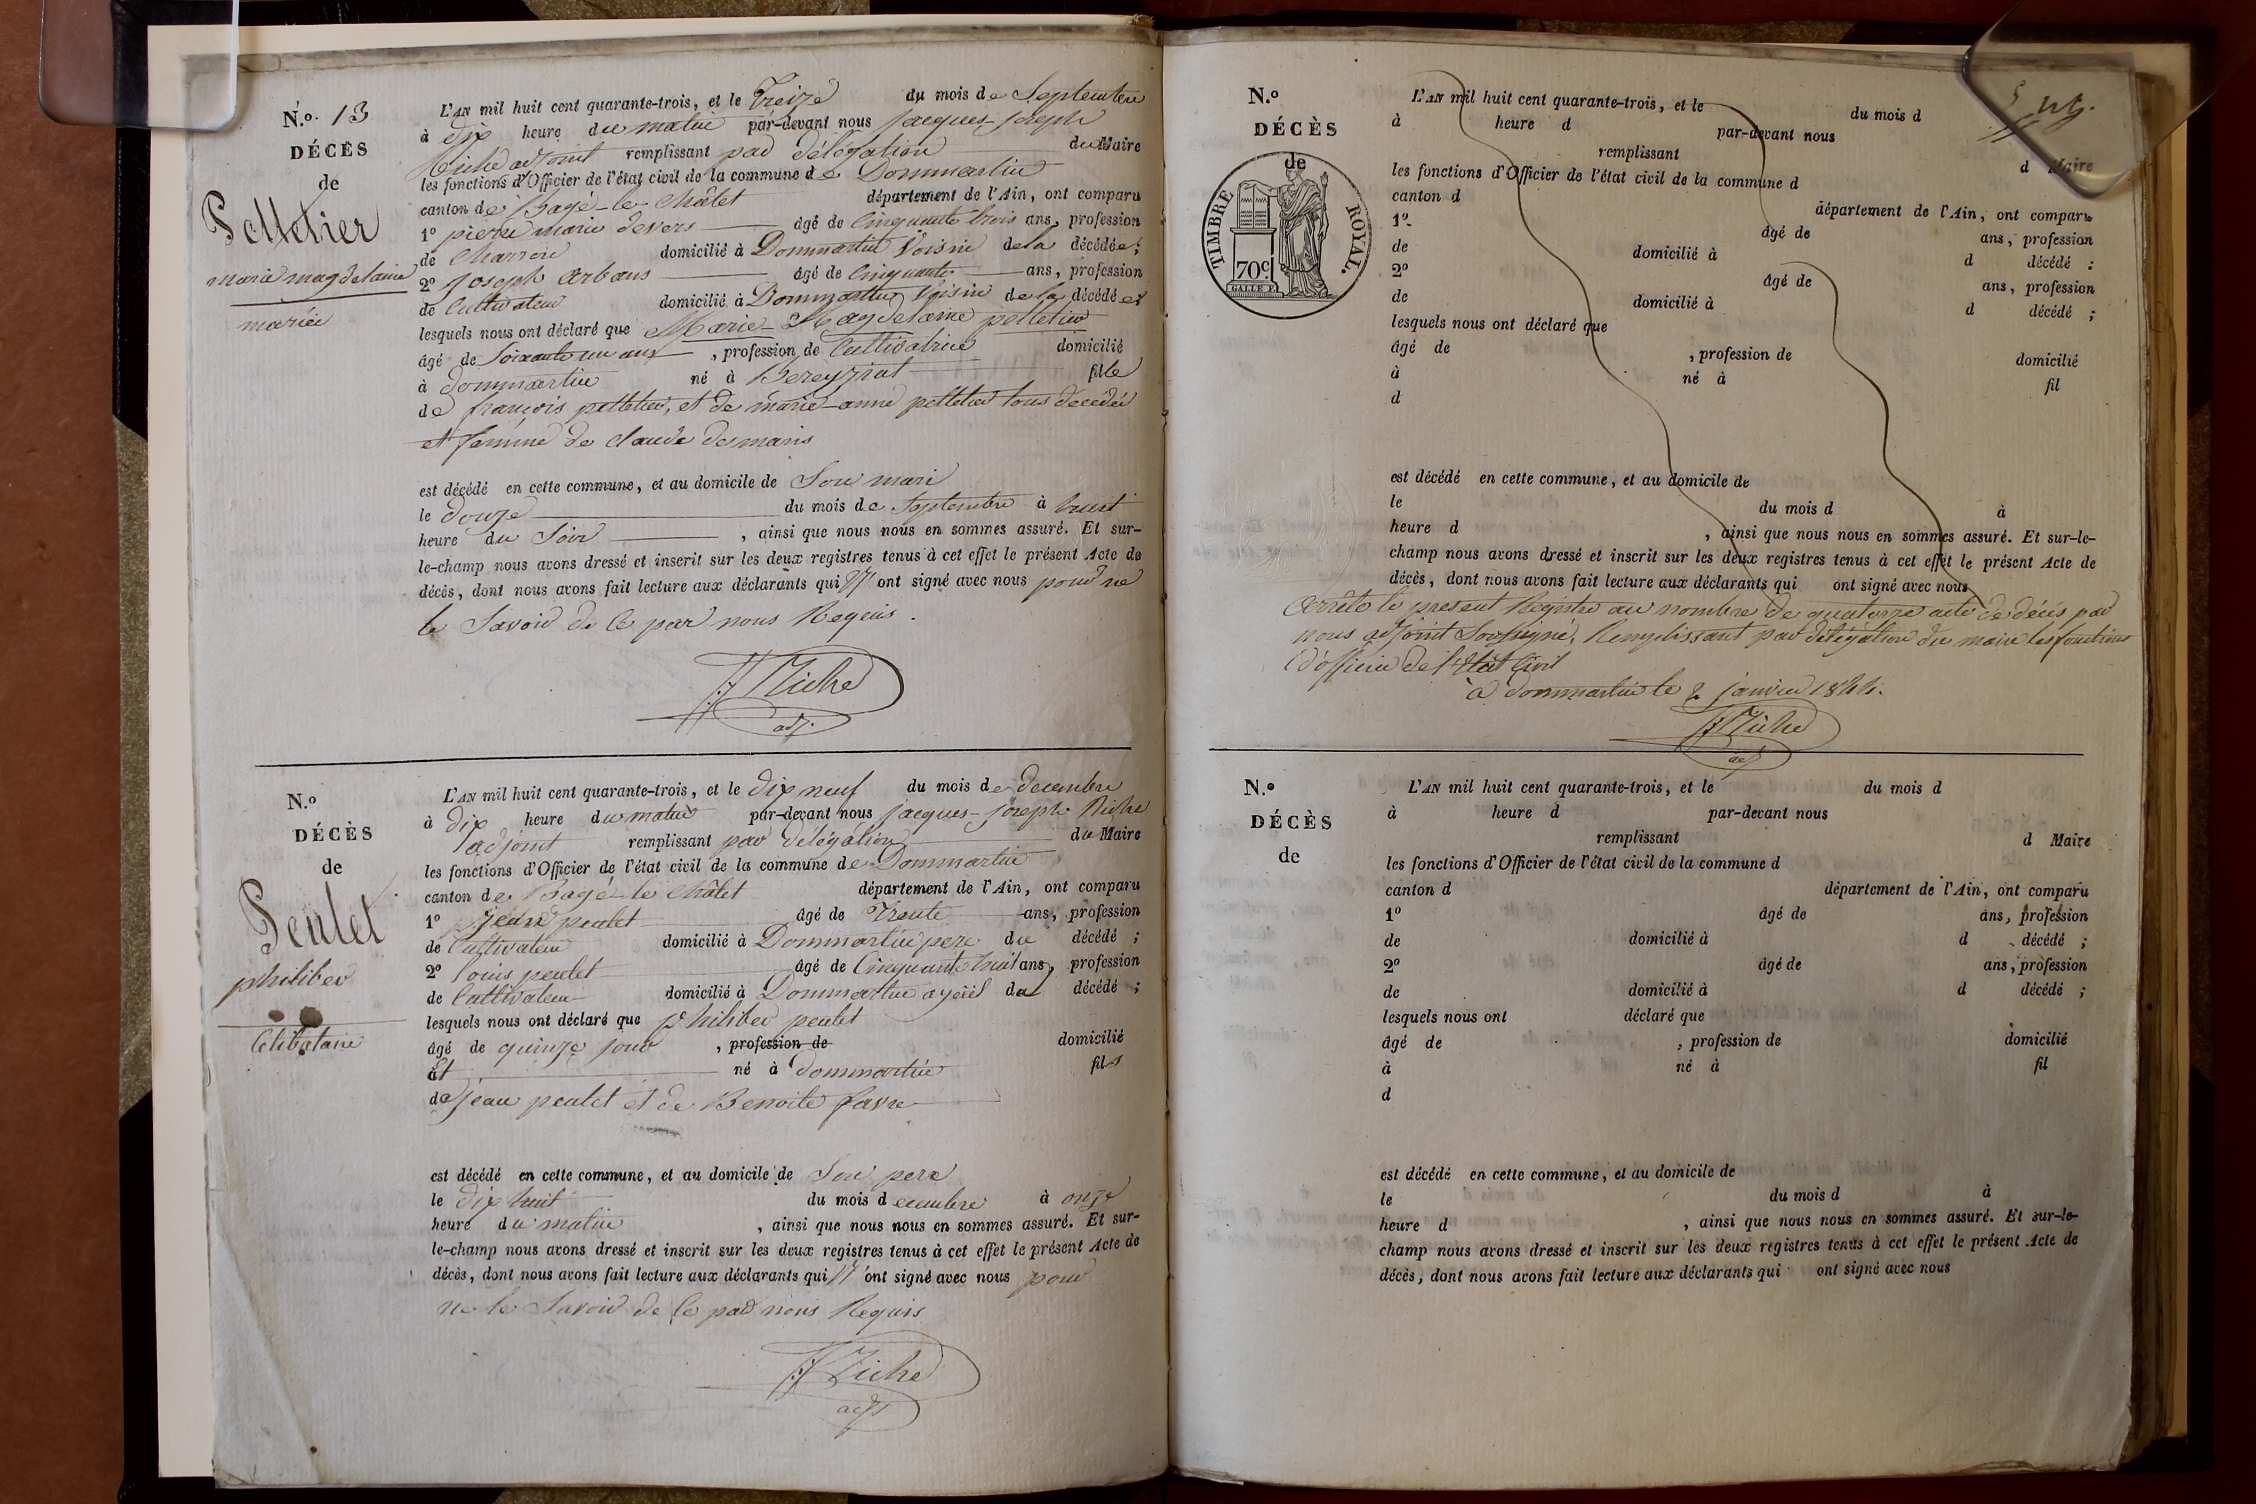 N.º 13
DÉCÈS
de
Pelletier
marie magdelaine
mariée
L'AN mil huit cent quarante-trois, et le Treize du mois de Septembre
à dix heure du matin par-devant nous jacques-joseph
Riche adjoint remplissant par délégation du Maire
les fonctions d'Officier de l'état civil de la commune de Dommartin
canton de Bagé-le-Châtel département de l'Ain, ont comparu
1º pierre marie devers âgé de Cinquante trois ans, profession
de Charron domicilié à Dommartin Voisin de la décédée ;
2º joseph arbans âgé de Cinquante ans, profession
de Cultivateur domicilié à Dommartin Voisin de la décédée
lesquels nous ont déclaré que Marie-Magdelaine pelletier
âgé de Soixante un ans , profession de Cultivatrice domicilié
à dommartin né à Bereyziat fille
de françois pelletier, et de marie-anne pelletier tous décédés
et femme de claude desmaris
est décédé en cette commune, et au domicile de Son mari
le douze du mois de Septembre à huit
heure du Soir , ainsi que nous nous en sommes assuré. Et sur-
le-champ nous avons dressé et inscrit sur les deux registres tenus à cet effet le présent Acte de
décès, dont nous avons fait lecture aux déclarants qui n'ont signé avec nous pour ne
le Savoir de ce par nous Requis.
JJ Riche
adj.
N.º
DÉCÈS
de
Peulet
philiber
Celibataire
L'AN mil huit cent quarante-trois, et le dix neuf du mois de decembre
à dix heure du matin par-devant nous jacques-joseph Riche
adjoint remplissant par délégation du Maire
les fonctions d'Officier de l'état civil de la commune de Dommartin
canton de Bagé-le-Châtel département de l'Ain, ont comparu
1º jean peulet âgé de Trente ans, profession
de Cultivateur domicilié à Dommartin pere du décédé ;
2º louis peulet âgé de Cinquante huit ans, profession
de Cultivateur domicilié à Dommartin ayeül du décédé ;
lesquels nous ont déclaré que philiber peulet
âgé de quinze jour , profession de domicilié
à né à Dommartin fils
de jean peulet et de Benoite favre
est décédé en cette commune, et au domicile de Son pere
le dix huit du mois decembre à onze
heure du matin , ainsi que nous nous en sommes assuré. Et sur-
le-champ nous avons dressé et inscrit sur les deux registres tenus à cet effet le présent Acte de
décès, dont nous avons fait lecture aux déclarants qui n'ont signé avec nous pour
ne le Savoir de ce par nous Requis
JJ Riche
adj
N.º
DÉCÈS
de
TIMBRE ROYAL.
70c
GALLE F.
L'AN mil huit cent quarante-trois, et le du mois d
à heure d par-devant nous
remplissant d Maire
les fonctions d'Officier de l'état civil de la commune d
canton d département de l'Ain, ont comparu
1º âgé de ans, profession
de domicilié à d décédé ;
2º âgé de ans, profession
de domicilié à d décédé ;
lesquels nous ont déclaré que
âgé de , profession de domicilié
à né à fil
d
est décédé en cette commune, et au domicile de
le du mois d à
heure d , ainsi que nous nous en sommes assuré. Et sur-le-
champ nous avons dressé et inscrit sur les deux registres tenus à cet effet le présent Acte de
décès, dont nous avons fait lecture aux déclarants qui ont signé avec nous
Arrêté le present Registre au nombre de quatorze acte de décès par
nous adjoint Soussigné, Remplissant par délégation du maire les fonctions
d'officier de l'état Civil
à dommartin le 2 janvier 1844.
JJ Riche
adj
N.º
DÉCÈS
de
L'AN mil huit cent quarante-trois, et le du mois d
à heure d par-devant nous
remplissant d Maire
les fonctions d'Officier de l'état civil de la commune d
canton d département de l'Ain, ont comparu
1º âgé de ans, profession
de domicilié à d décédé ;
2º âgé de ans, profession
de domicilié à d décédé ;
lesquels nous ont déclaré que
âgé de , profession de domicilié
à né à fil
d
est décédé en cette commune, et au domicile de
le du mois d à
heure d , ainsi que nous nous en sommes assuré. Et sur-le-
champ nous avons dressé et inscrit sur les deux registres tenus à cet effet le présent Acte de
décès, dont nous avons fait lecture aux déclarants qui ont signé avec nous